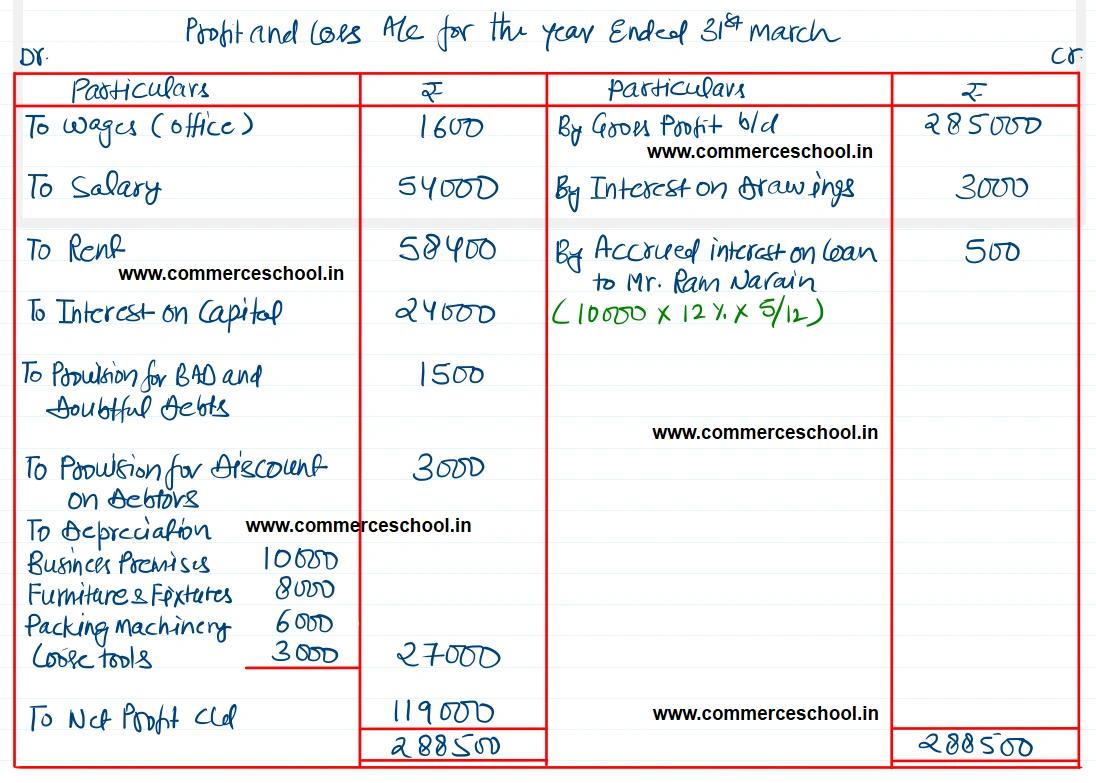 Profit and Loss A/c for the year Ended 31st march
Dr. Cr.
Particulars ₹ Particulars ₹
To wages (office) 1600 By Gross Profit b/d 285000
www.commerceschool.in
To Salary 54000 By Interest on Drawings 3000
To Rent 58400 By Accrued interest on loan 500
www.commerceschool.in to Mr. Ram Narain
To Interest on Capital 24000 (10000 x 12% x 5/12)
To Provision for BAD and 1500
Doubtful Debts
www.commerceschool.in
To Provision for Discount 3000
on Debtors
To Depreciation www.commerceschool.in
Business Premises 10000
Furniture & Fixtures 8000
Packing Machinery 6000
Loose tools 3000 27000
To Net Profit c/d 119000 www.commerceschool.in
288500 288500